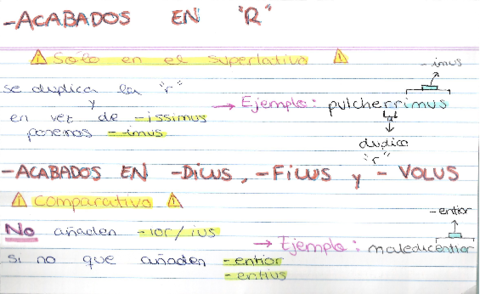 -ACABADOS EN "R"
⚠ Sólo en el superlativo ⚠
- imus
se duplica la "r"
y
→ Ejemplo: pulcherrimus
en vez de -issimus
ponemos -imus
duplica
"r"
-ACABADOS EN -DICUS, -FICUS y - VOLUS
⚠ Comparativo ⚠
- entior
No añaden -ior/ius
→ Ejemplo: maledicentior
si no que añaden -entior
-entius